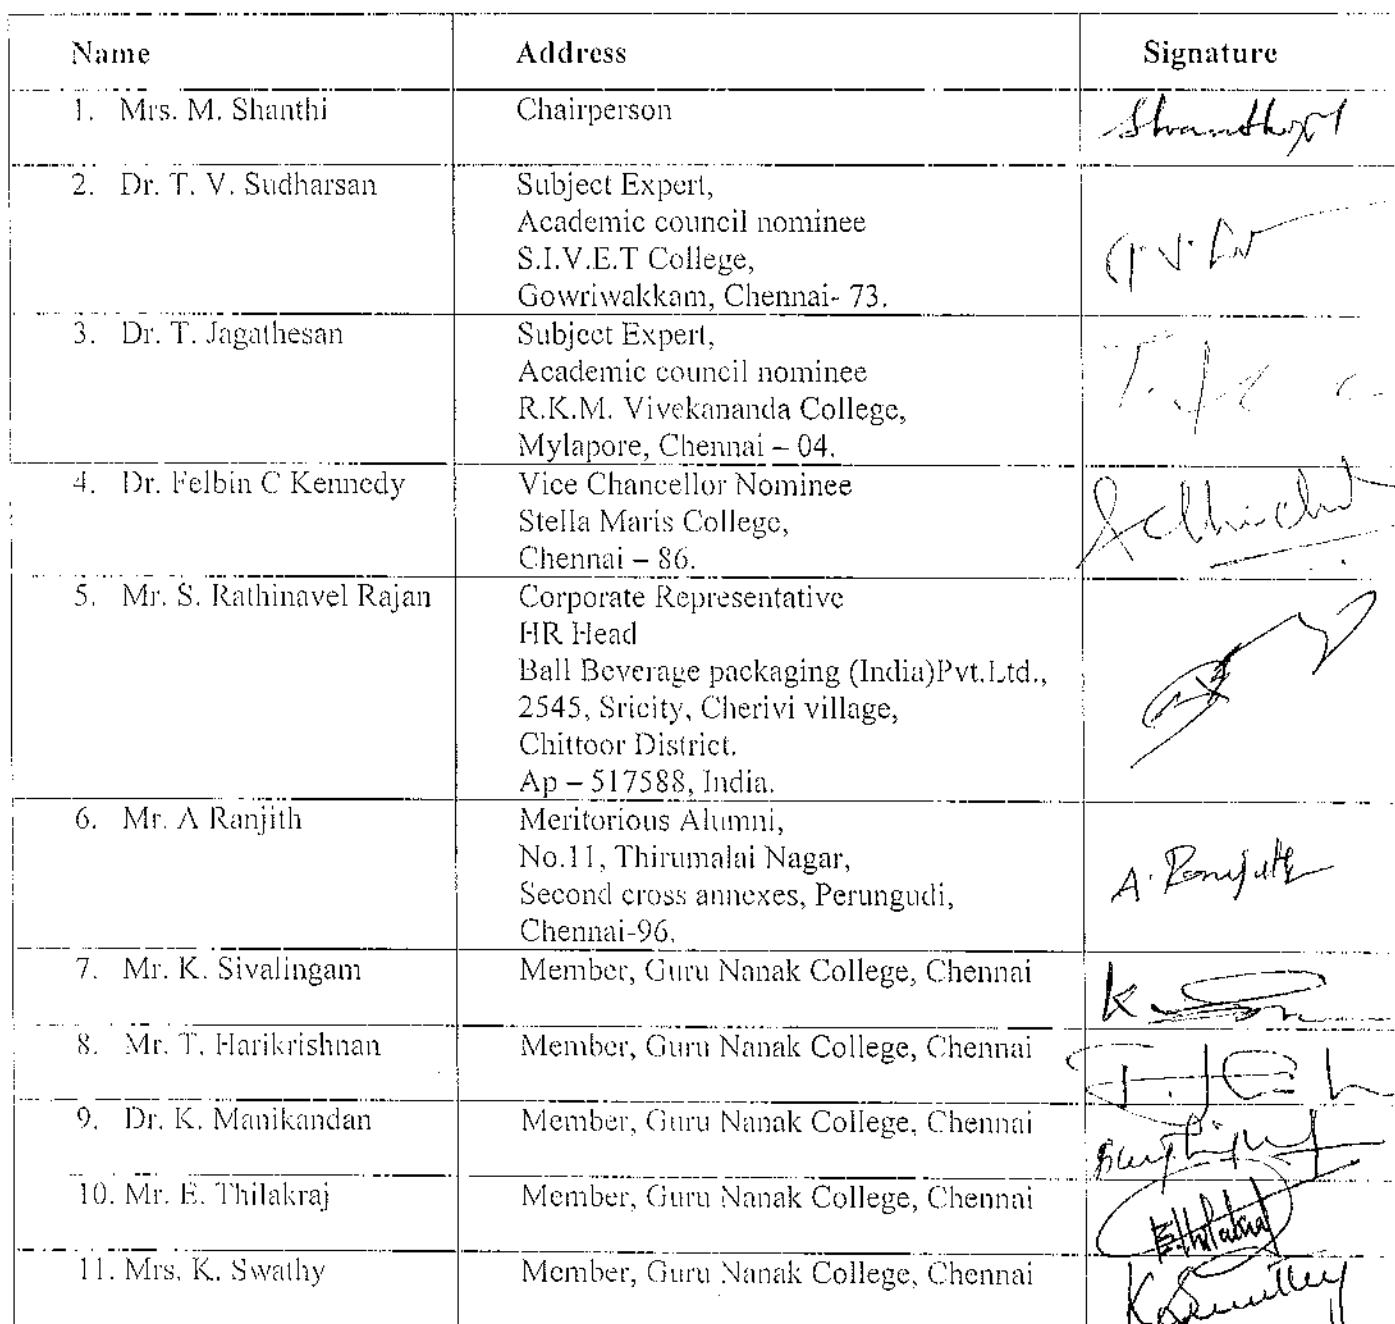 Name Address Signature
1. Mrs. M. Shanthi Chairperson
2. Dr. T. V. Sudharsan Subject Expert,
Academic council nominee
S.I.V.E.T College,
Gowriwakkam, Chennai- 73.
3. Dr. T. Jagathesan Subject Expert,
Academic council nominee
R.K.M. Vivekananda College,
Mylapore, Chennai – 04.
4. Dr. Felbin C Kennedy Vice Chancellor Nominee
Stella Maris College,
Chennai – 86.
5. Mr. S. Rathinavel Rajan Corporate Representative
HR Head
Ball Beverage packaging (India)Pvt.Ltd.,
2545, Sricity, Cherivi village,
Chittoor District.
Ap – 517588, India.
6. Mr. A Ranjith Meritorious Alumni,
No.11, Thirumalai Nagar,
Second cross annexes, Perungudi,
Chennai-96.
A. Ranjith
7. Mr. K. Sivalingam Member, Guru Nanak College, Chennai
8. Mr. T. Harikrishnan Member, Guru Nanak College, Chennai
9. Dr. K. Manikandan Member, Guru Nanak College, Chennai
10. Mr. E. Thilakraj Member, Guru Nanak College, Chennai
E.Thilakraj
11. Mrs. K. Swathy Member, Guru Nanak College, Chennai